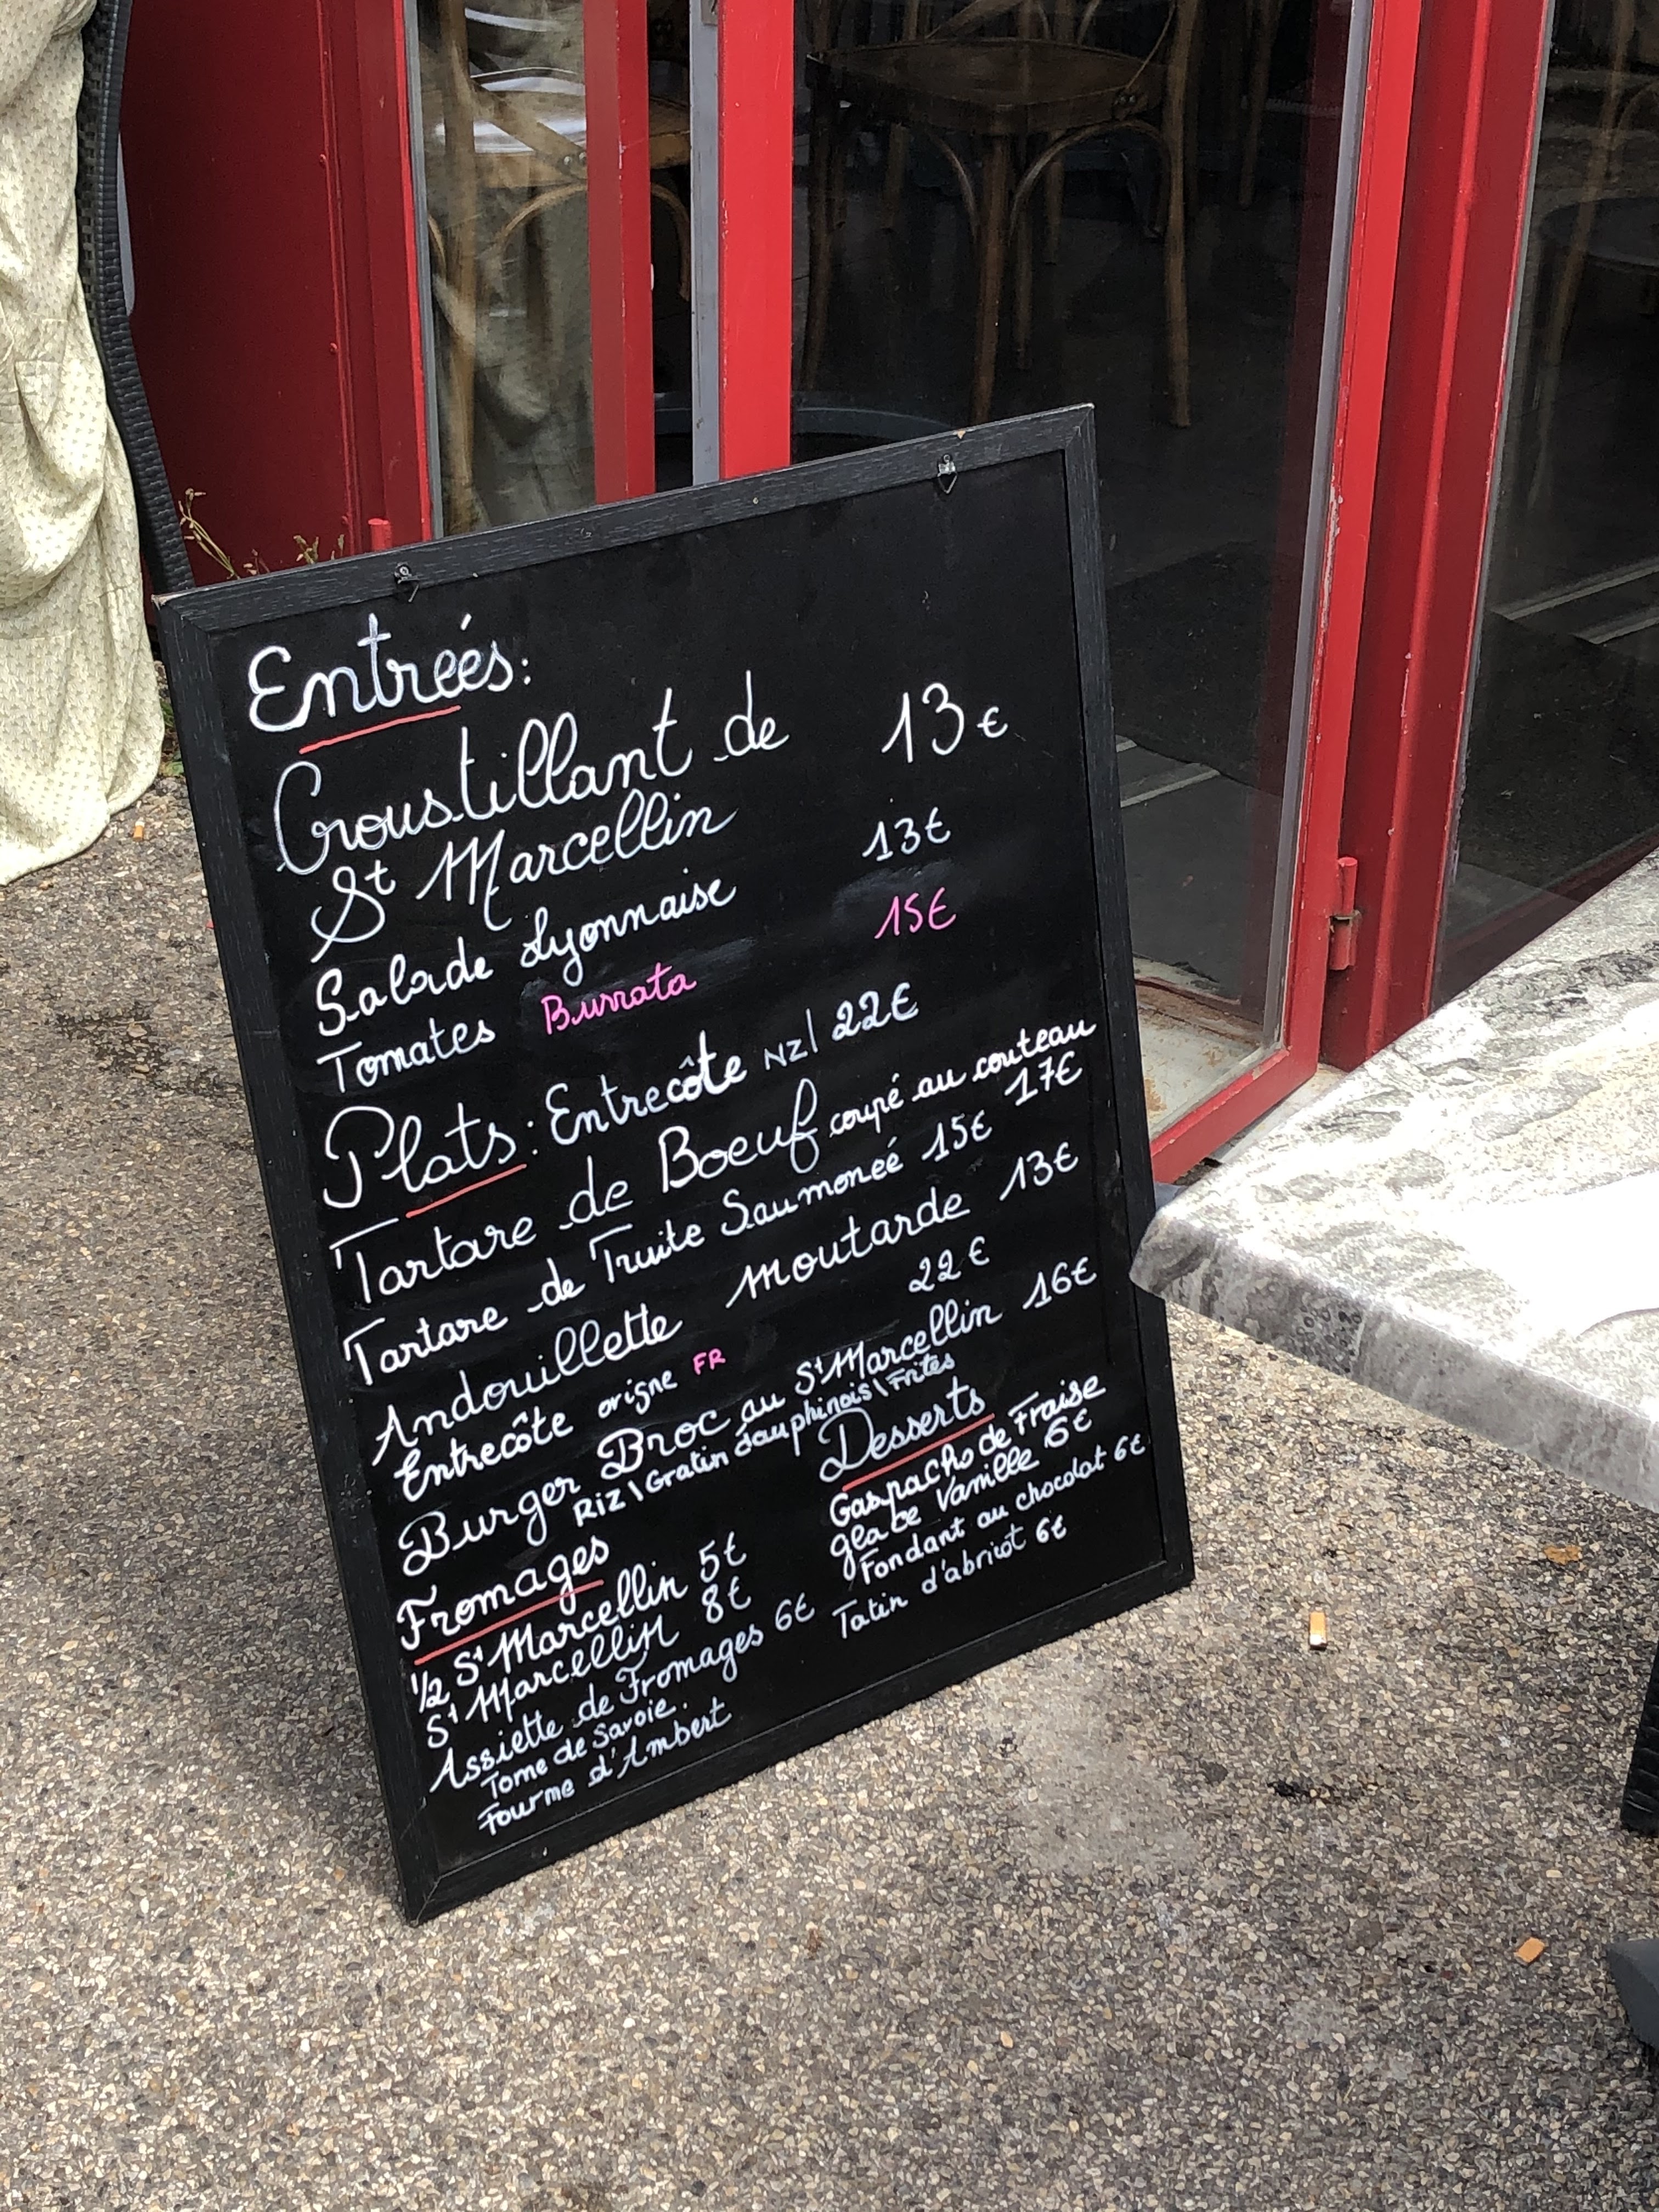 Entreés:
Croustillant de 13€
St Marcellin
Salade Lyonnaise 13€
Tomates Burrata 15€
Plats: Entrecôte NZ| 22€
Tartare de Boeuf coupé au couteau
17€
Tartare de Truite Saumoneé 15€
Andouillette moutarde 13€
Entrecôte origne FR 22€
Burger Broc au St Marcellin 16€
Riz\Gratin dauphinois\Frites
Fromages
1/2 St Marcellin 5€
St Marcellin 8€
Assiette de Fromages 6€
Tome de Savoie.
Fourme d'Ambert
Desserts
Gaspacho de Fraise
glace Vamille 6€
Fondant au chocolat 6€
Tatin d'abricot 6€